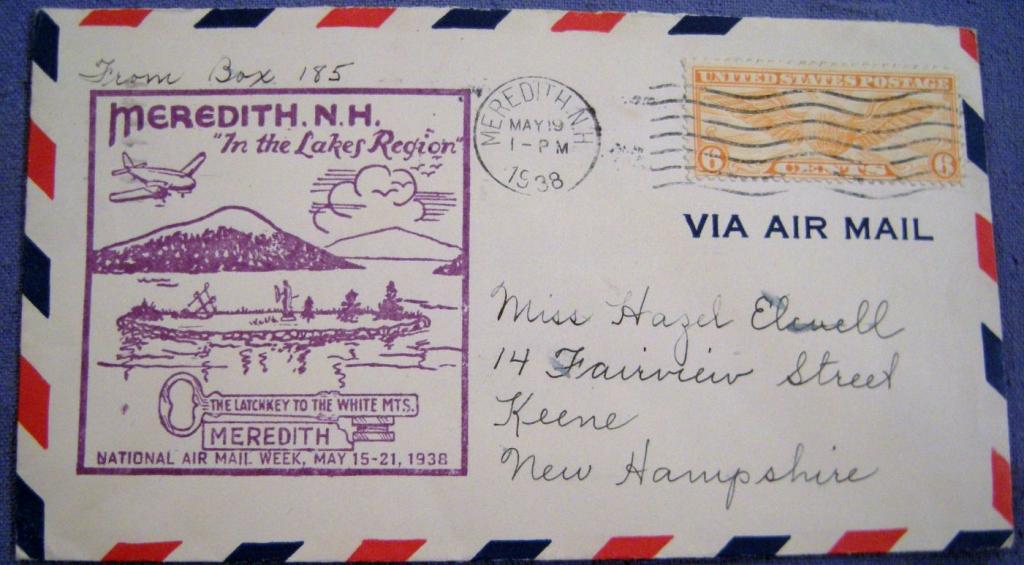 From Box 185
MEREDITH. N.H.
"In the Lakes Region"
THE LATCHKEY TO THE WHITE MTS.
MEREDITH
NATIONAL AIR MAIL WEEK, MAY 15-21, 1938
MEREDITH, N.H.
MAY 19
1-PM
1938
UNITED STATES POSTAGE
6 CENTS 6
VIA AIR MAIL
Miss Hazel Elwell
14 Fairview Street
Keene
New Hampshire